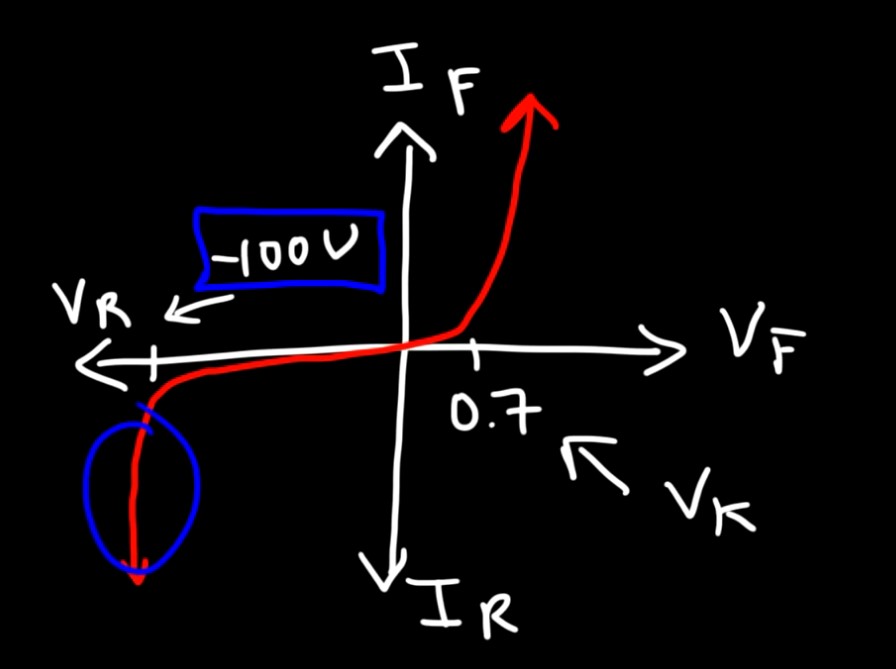 I_F
-100V
V_R
V_F
0.7
V_K
I_R